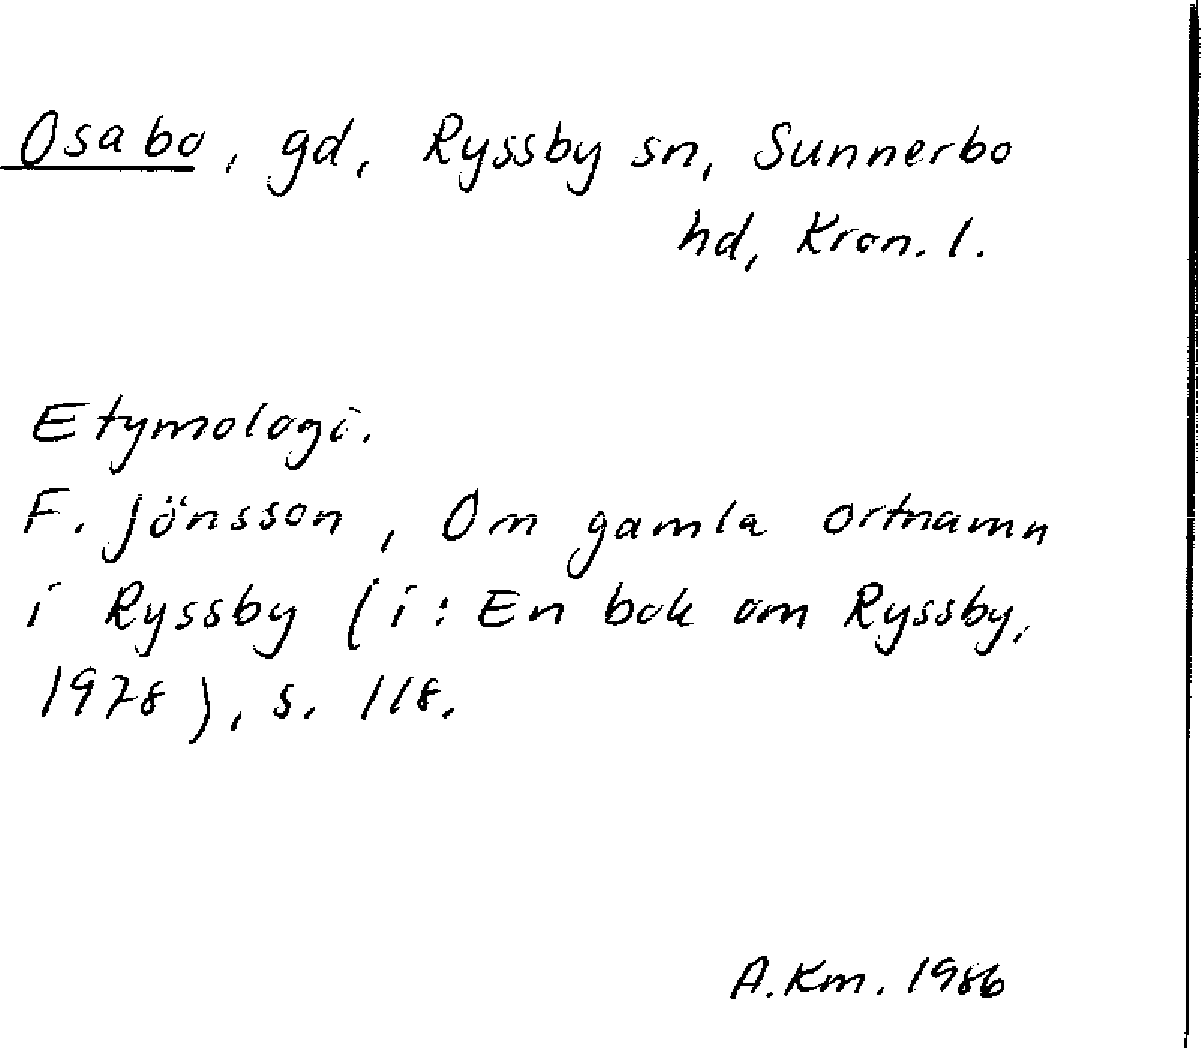 Osabo, gd, Ryssby sn, Sunnerbo
hd, Kron. l.
Etymologi.
F. Jönsson, Om gamla ortnamn
i Ryssby (i: En bok om Ryssby,
1978), s. 118.
A. Km. 1986